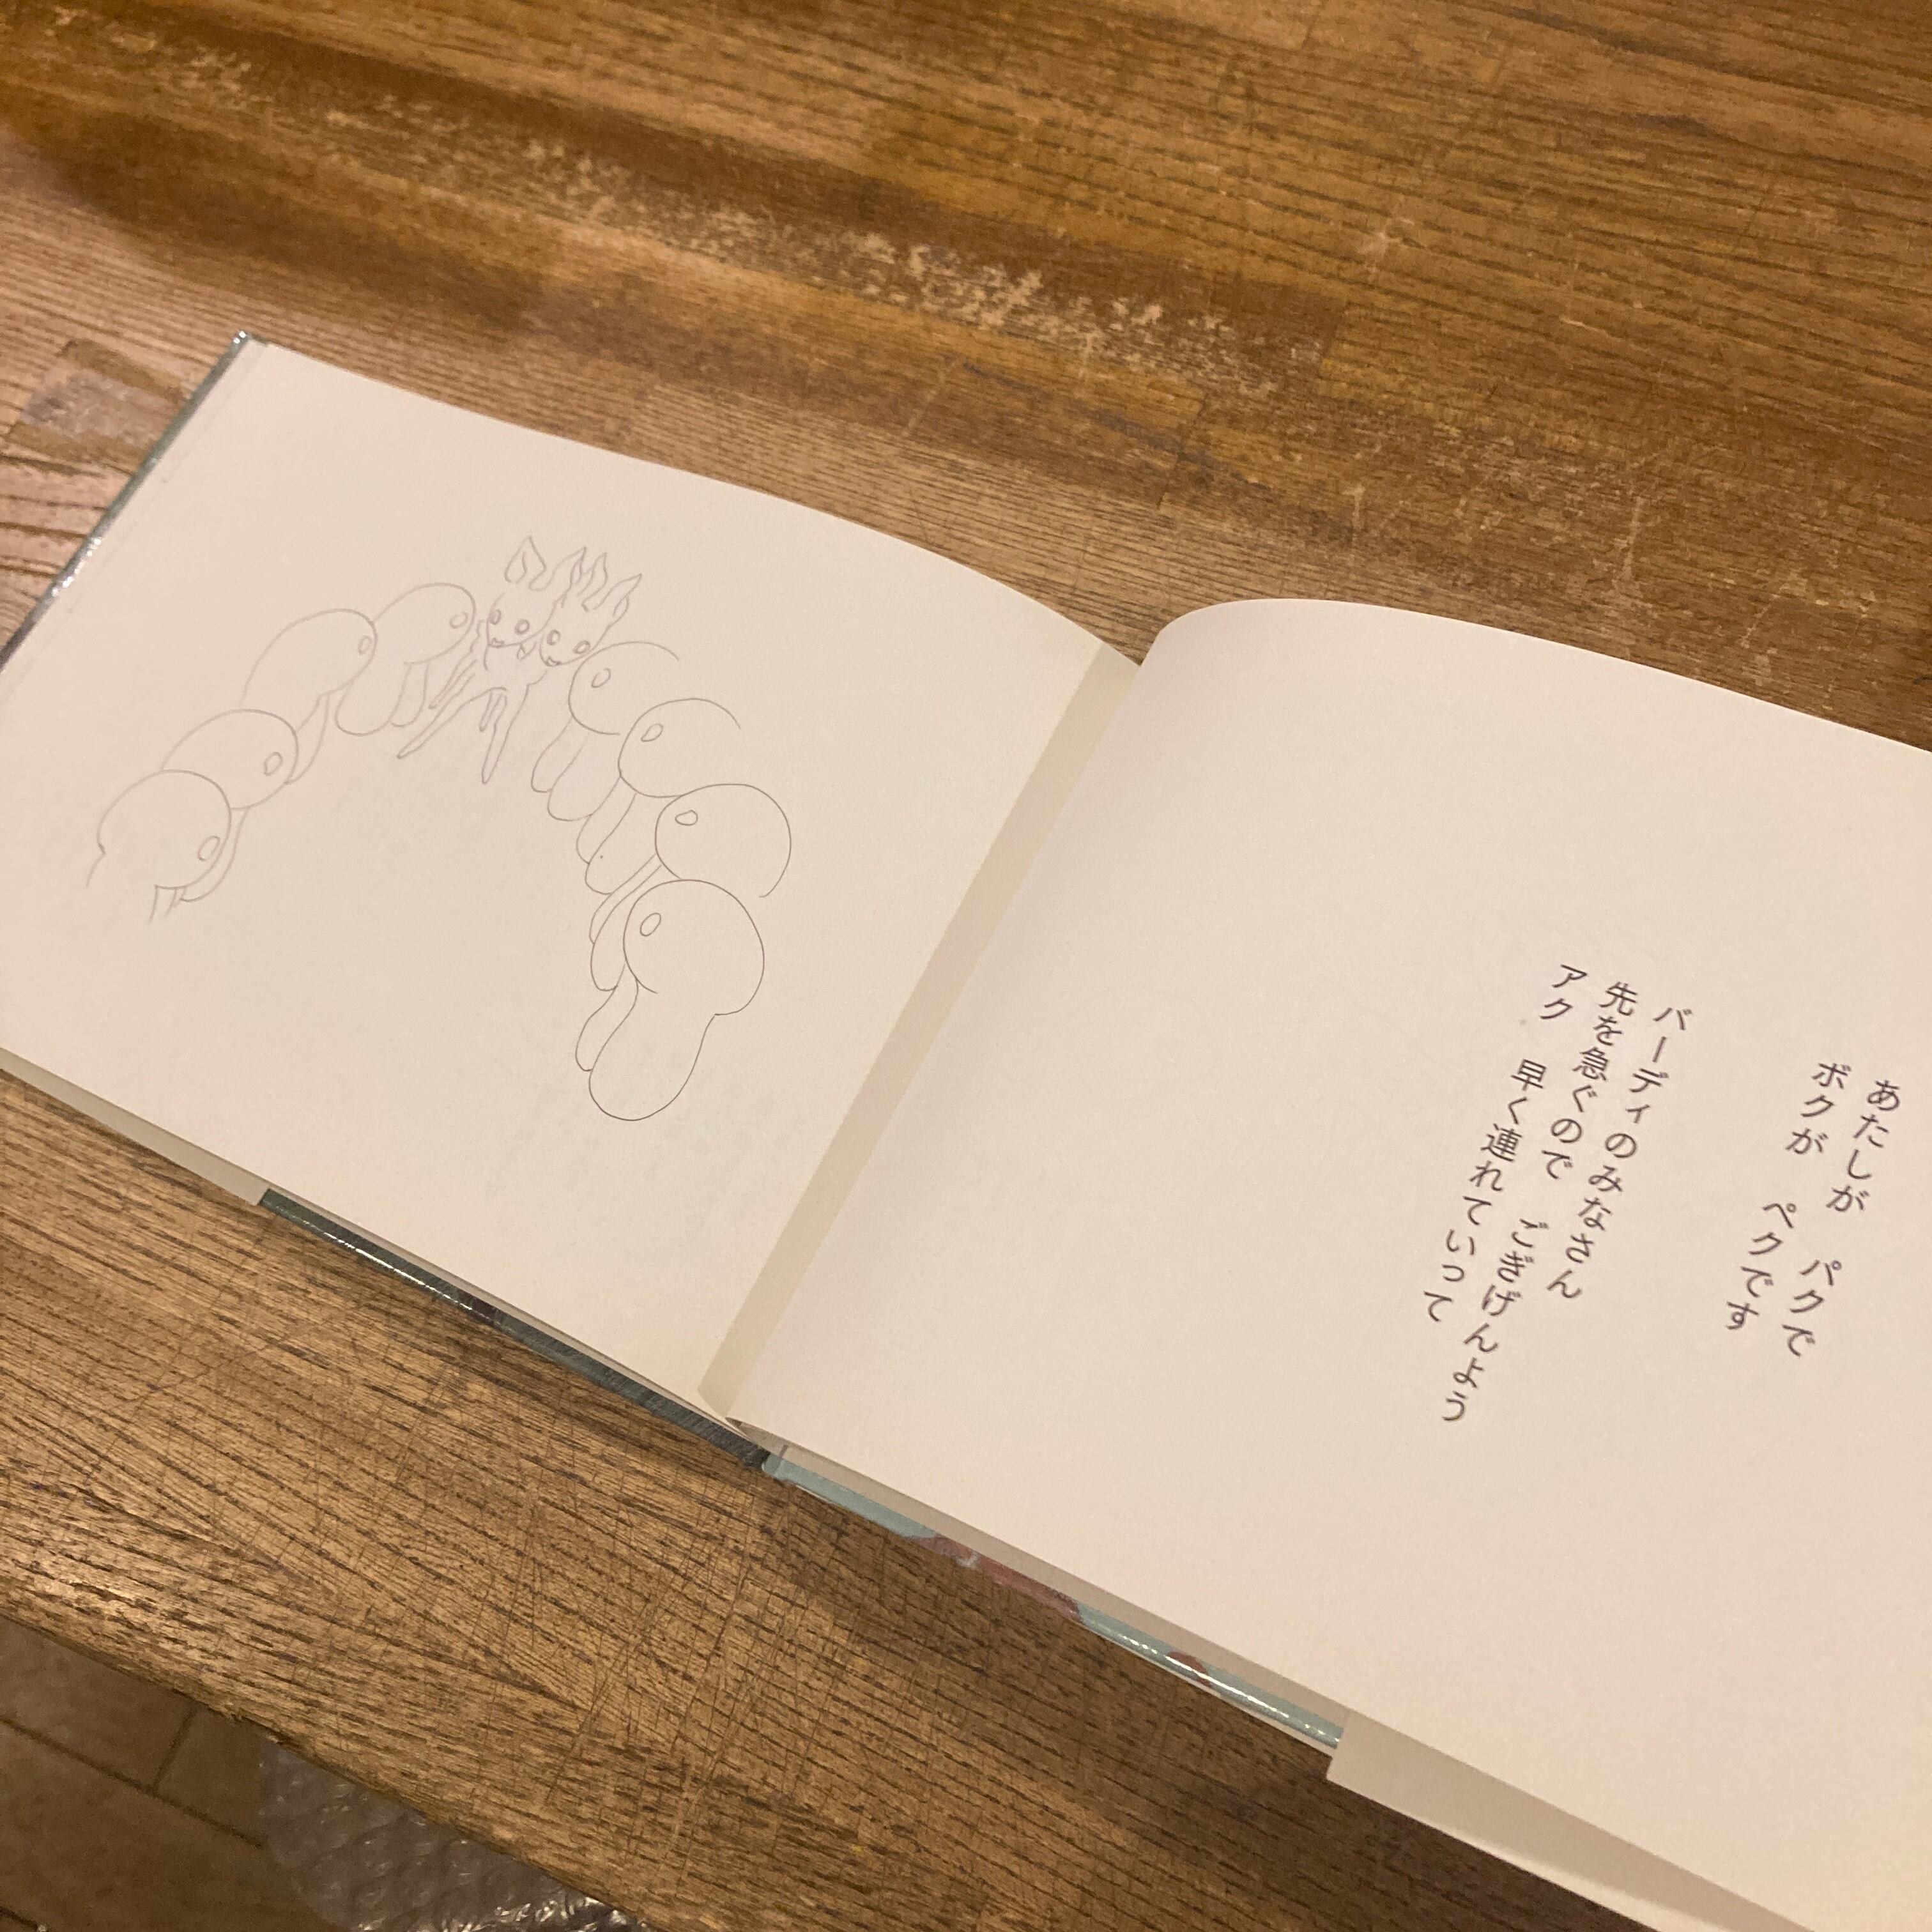 あたしが　パクで
ボクが　ペクです
バーディのみなさん
先を急ぐので　ごきげんよう
アク　早く連れていって